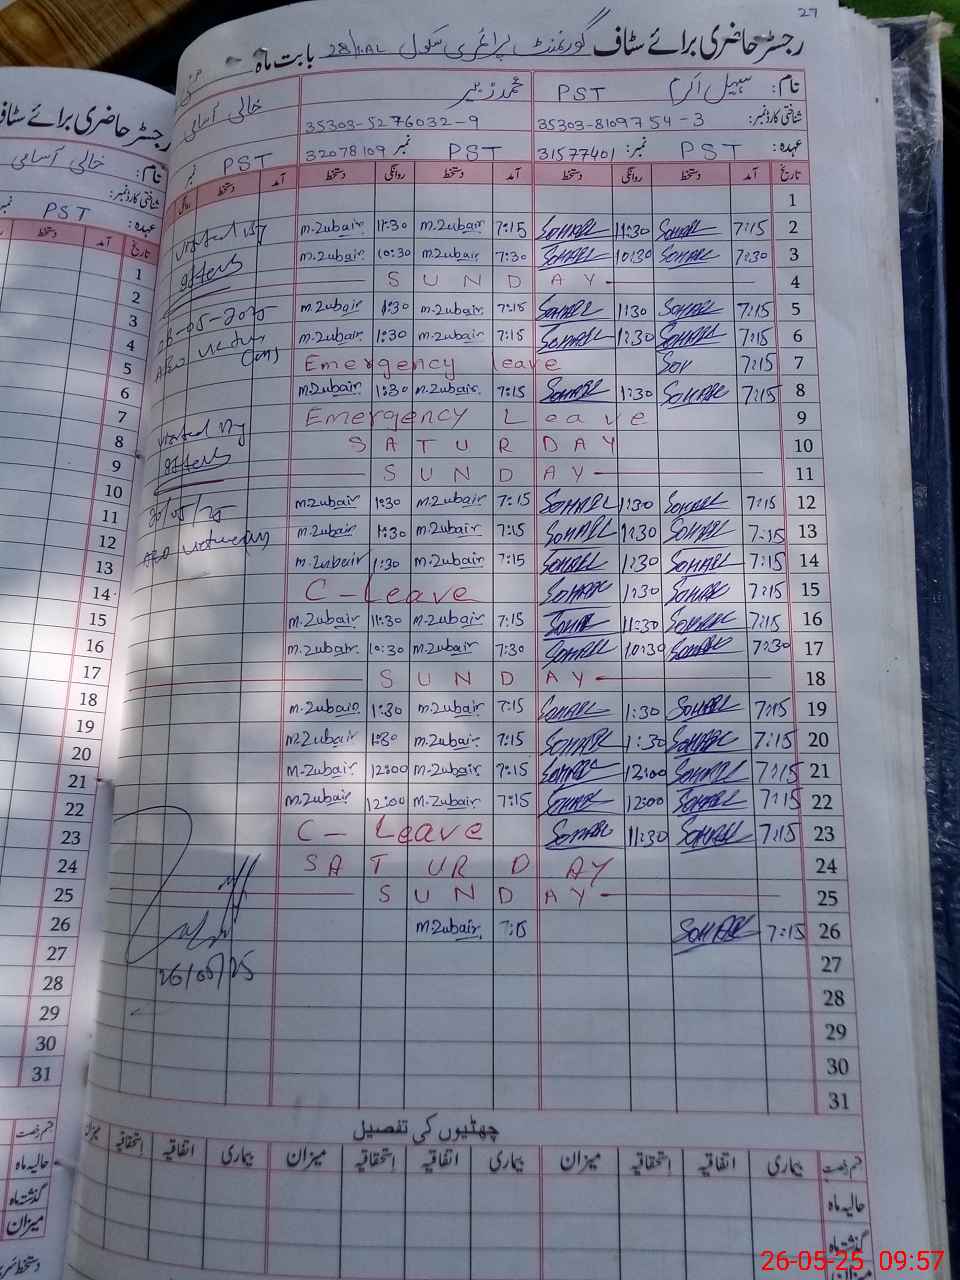 27
رجسٹر حاضری برائے سٹاف گورنمنٹ پرائمری سکول 28/1.AL بابت ماہ
نام: سہیل اکرم PST محمد زبیر خالی آسامی
شناختی کارڈ نمبر: 35303-8109754-3 35303-5276032-9
عہدہ: PST نمبر: 31577401 PST نمبر 32078109 PST نمبر
تاریخ آمد دستخط روانگی دستخط آمد دستخط روانگی دستخط آمد دستخط
1
2 7:15 SOHAEL 11:30 SOHAEL 7:15 m.Zubair 11:30 m.Zubair
3 7:30 SOHAEL 10:30 SOHAEL 7:30 m.Zubair 10:30 m.Zubair
4 SUNDAY
5 7:15 SOHAEL 1:30 SOHAEL 7:15 m.Zubair 1:30 m.Zubair
6 7:15 SOHAEL 1:30 SOHAEL 7:15 m.Zubair 1:30 m.Zubair
7 7:15 Emergency leave
8 7:15 SOHAEL 1:30 SOHAEL 7:15 m.Zubair 1:30 m.Zubair
9 Emergency Leave
10 SATURDAY
11 SUNDAY
12 7:15 SOHAEL 1:30 SOHAEL 7:15 m.Zubair 1:30 m.Zubair
13 7:15 SOHAEL 1:30 SOHAEL 7:15 m.Zubair 1:30 m.Zubair
14 7:15 SOHAEL 1:30 SOHAEL 7:15 m.Zubair 1:30 m.Zubair
15 7:15 SOHAEL 1:30 SOHAEL C-Leave
16 7:15 SOHAEL 11:30 SOHAEL 7:15 m.Zubair 11:30 m.Zubair
17 7:30 SOHAEL 10:30 SOHAEL 7:30 m.Zubair 10:30 m.Zubair
18 SUNDAY
19 7:15 SOHAEL 1:30 SOHAEL 7:15 m.Zubair 1:30 m.Zubair
20 7:15 SOHAEL 1:30 SOHAEL 7:15 m.Zubair 1:30 m.Zubair
21 7:15 SOHAEL 12:00 SOHAEL 7:15 m.Zubair 12:00 m.Zubair
22 7:15 SOHAEL 12:00 SOHAEL 7:15 m.Zubair 12:00 m.Zubair
23 7:15 SOHAEL 11:30 SOHAEL C-Leave
24 SATURDAY
25 SUNDAY
26 7:15 SOHAEL 7:15 m.Zubair
27
28
29
30
31
26/05/25
چھٹیوں کی تفصیل
قسم رخصت بیماری اتفاقیہ استحقاقیہ میزان بیماری اتفاقیہ استحقاقیہ میزان بیماری اتفاقیہ استحقاقیہ میزان
حالیہ ماہ
گذشتہ ماہ
میزان
رجسٹر حاضری برائے سٹاف
نام: خالی آسامی
شناختی کارڈ نمبر:
عہدہ: PST نمبر
تاریخ آمد دستخط
1
2
3
4
5
6
7
8
9
10
11
12
13
14
15
16
17
18
19
20
21
22
23
24
25
26
27
28
29
30
31
قسم رخصت
حالیہ ماہ
گذشتہ ماہ
میزان
26-05-25 09:57